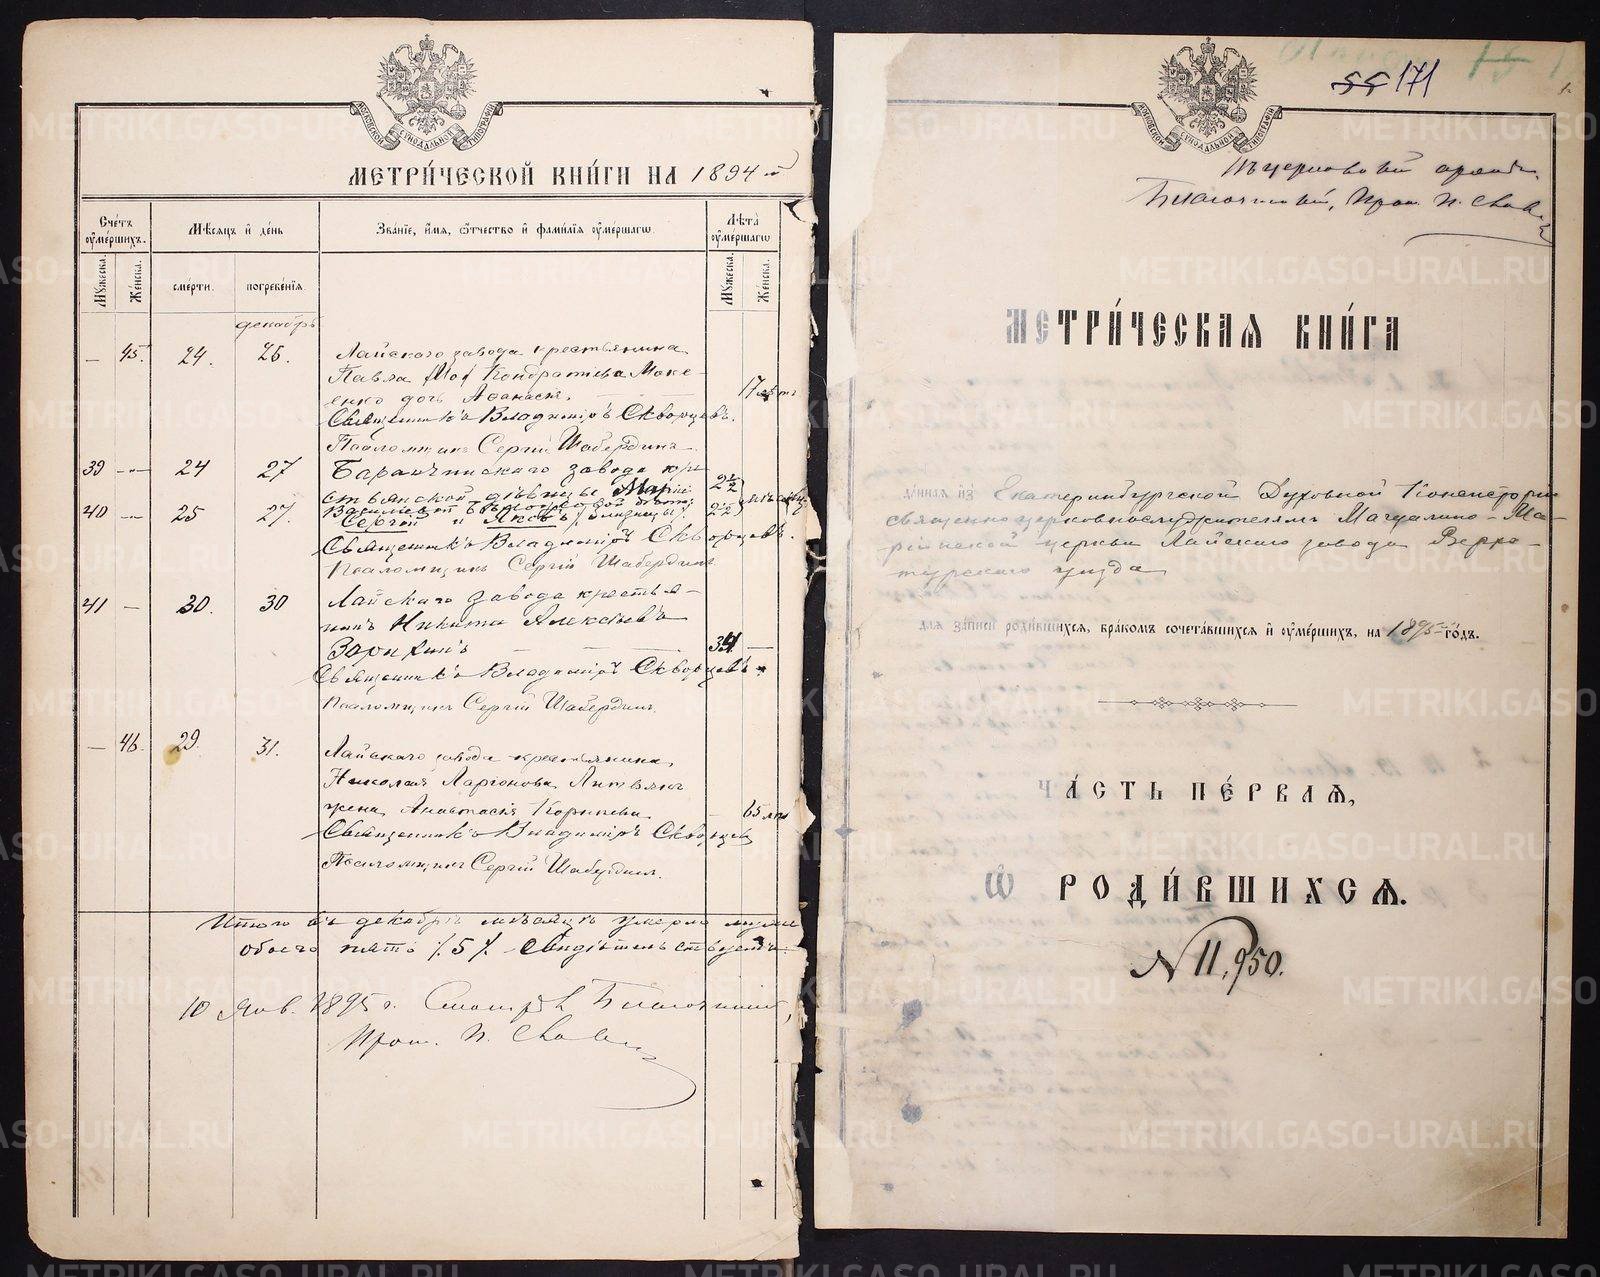 МОСКОВСКОЙ СУНОДАЛЬНОЙ ТИПОГРАФІИ
МЕТРИ́ЧЕСКОЙ КНИ́ГИ НА 1894 й
Сче́тъ оу҆ме́ршихъ.
Мѣ́сяцъ и҆ де́нь
Зва́нїе, и҆́мя, ѻ҆́тчество и҆ фами́лїя оу҆ме́ршагѡ.
Лѣ́та оу҆ме́ршагѡ
Мꙋ́жеска.
Же́нска.
сме́рти.
погребе́нїя.
Мꙋ́жеска.
Же́нска.
декабрь
— 45. 24. 26. Лайскаго завода крестьянина
Павла Кондратьева Маке-
енко дочь Афанасія. 17 лѣтъ
Священникъ Владиміръ Скворцовъ.
Псаломщикъ Сергій Шабердинъ
39 —„— 24 27 Баранчинскаго завода кре
стьянской дѣвицы Маріи 2½
40 —„— 25 27. Васильевой дѣти 2½ мѣсяц.
Сергій и Яковъ /близнецы/.
Священникъ Владиміръ Скворцовъ.
Псаломщикъ Сергій Шабердинъ
41 — 30. 30 Лайскаго завода крестья-
нинъ Никита Алексѣевъ
Зорихинъ — — — 34 —
Священникъ Владиміръ Скворцовъ.
Псаломщикъ Сергій Шабердинъ.
— 46. 29. 31. Лайскаго завода крестьянина
Николая Ларіонова Литвяк
жена Анастасія Корнѣева — 65 лѣт
Священникъ Владиміръ Скворцов
Псаломщикъ Сергій Шабердинъ.
Итого въ декабрѣ мѣсяцѣ умерло
обоего пять /.5/. Свидѣтельствуемъ.
10 Янв. 1895 г. Смотрѣлъ Благочинный,
Прот. П. Славнин
55 171
15
Къ церковной
Благочинный, Прот. П. Славнин
МОСКОВСКОЙ СУНОДАЛЬНОЙ ТИПОГРАФІИ
МЕТРИ́ЧЕСКАѦ КНИ́ГА
да́нная и҆з̾ Екатеринбургской Духовной Консисторіи
священно церковнослужителямъ Магдалино-Ма-
ріинской церкви Лайскаго завода Верхо-
турскаго уѣзда
для за́писи роди́вшихся, бра́комъ сочета́вшихся и҆ оу҆ме́ршихъ, на 1895 го́дъ.
ЧА́СТЬ ПЕ́РВАѦ,
Ѡ҆ РОДИ́ВШИХСѦ.
№ 11,950.
METRIKI.GASO-URAL.RU